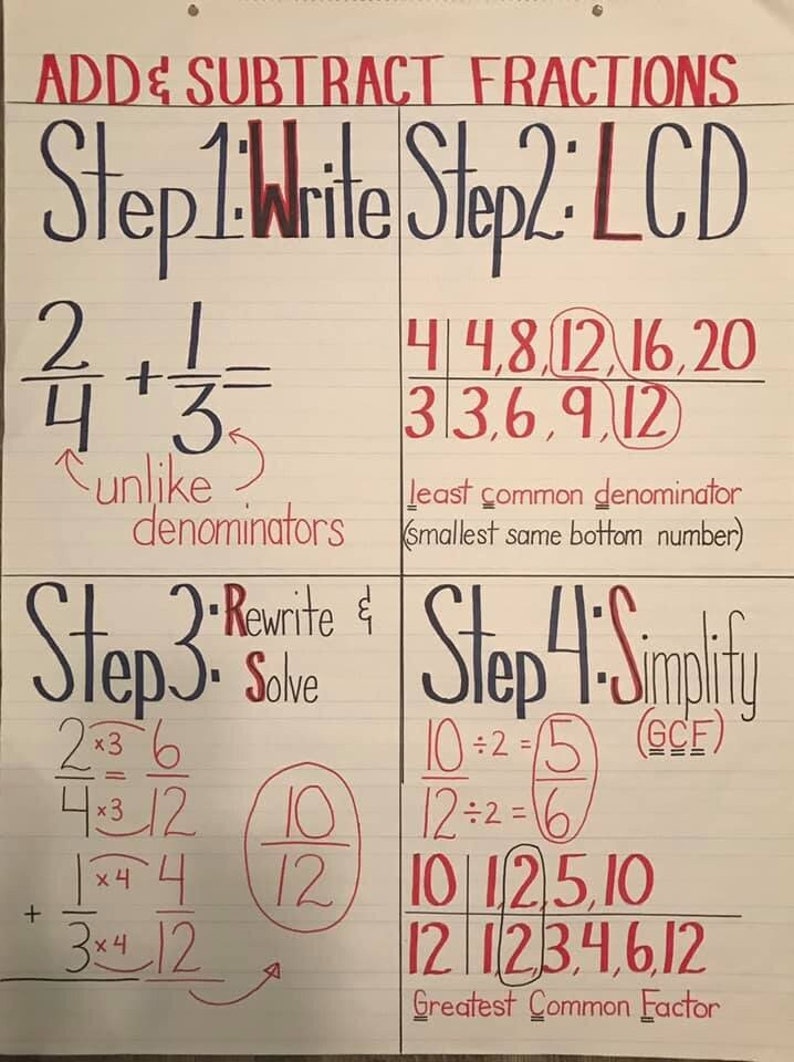 ADD & SUBTRACT FRACTIONS
Step 1: Write
2/4 + 1/3 =
unlike
denominators
Step 2: LCD
4 | 4, 8, 12, 16, 20
3 | 3, 6, 9, 12
least common denominator
(smallest same bottom number)
Step 3: Rewrite &
Solve
2 ×3 6
=
4 ×3 12
1 ×4 4
+
3 ×4 12
10
12
Step 4: Simplify
(GCF)
10 ÷2 = 5
12 ÷2 = 6
10 | 1, 2, 5, 10
12 | 1, 2, 3, 4, 6, 12
Greatest Common Factor